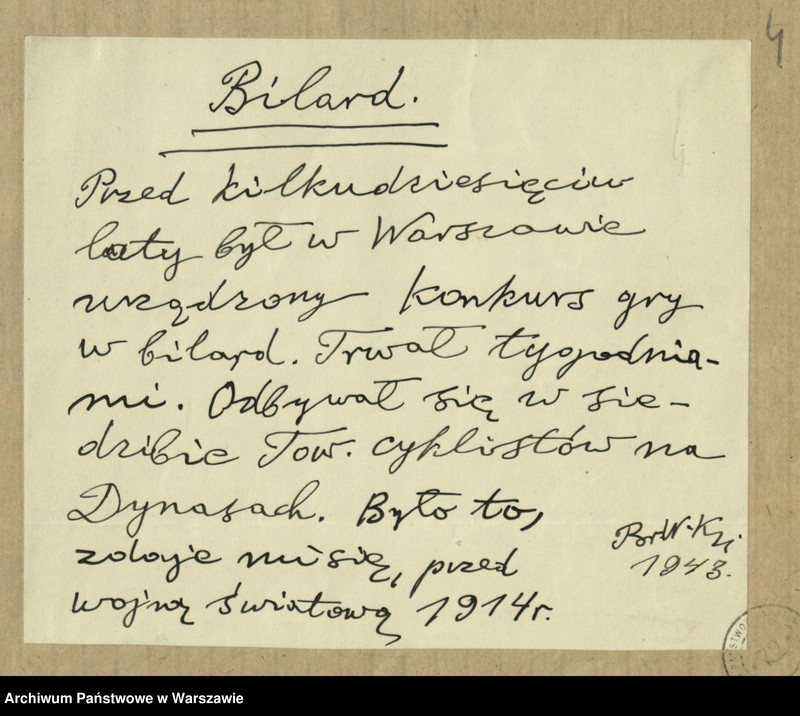 4
Bilard.
Przed kilkudziesięciu
laty był w Warszawie
urządzony konkurs gry
w bilard. Trwał tygodnia-
mi. Odbywał się w sie-
dzibie Tow. cyklistów na
Dynasach. Było to,
zdaje mi się, przed
wojną światową 1914 r.
1943.
Archiwum Państwowe w Warszawie